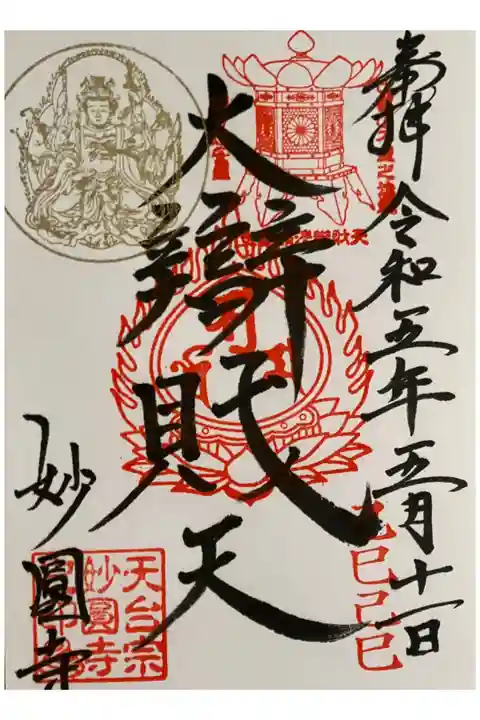 奉拝
令和五年五月十一日
己巳己巳
大辯財天
妙圓寺
天台宗
妙圓寺